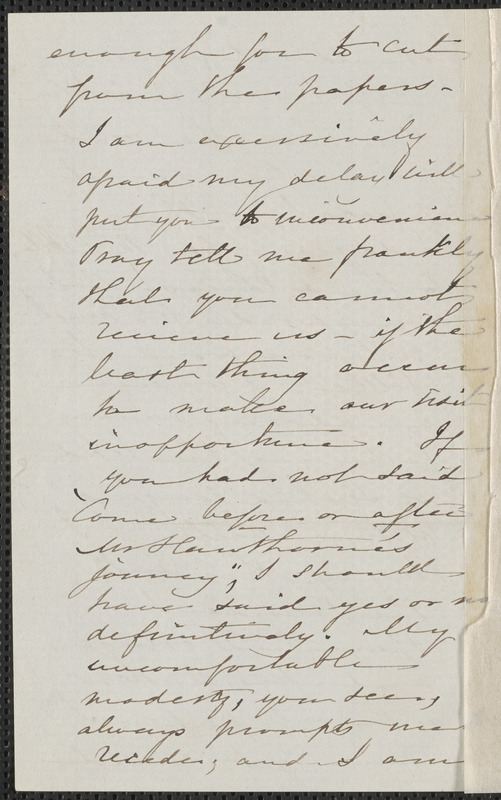 enough for to cut
from the papers -
I am excessively
afraid my delay will
put you to inconvenien
Pray tell me frankly
that you cannot
recieve us - if the
least thing occur
to make our visit
inopportune. If
you had not said
"Come before or after
Mr Hawthorne's
journey", I should
have said yes or no
definitively. My
uncomfortable
modesty, you see,
always prompts me
recede, and I am